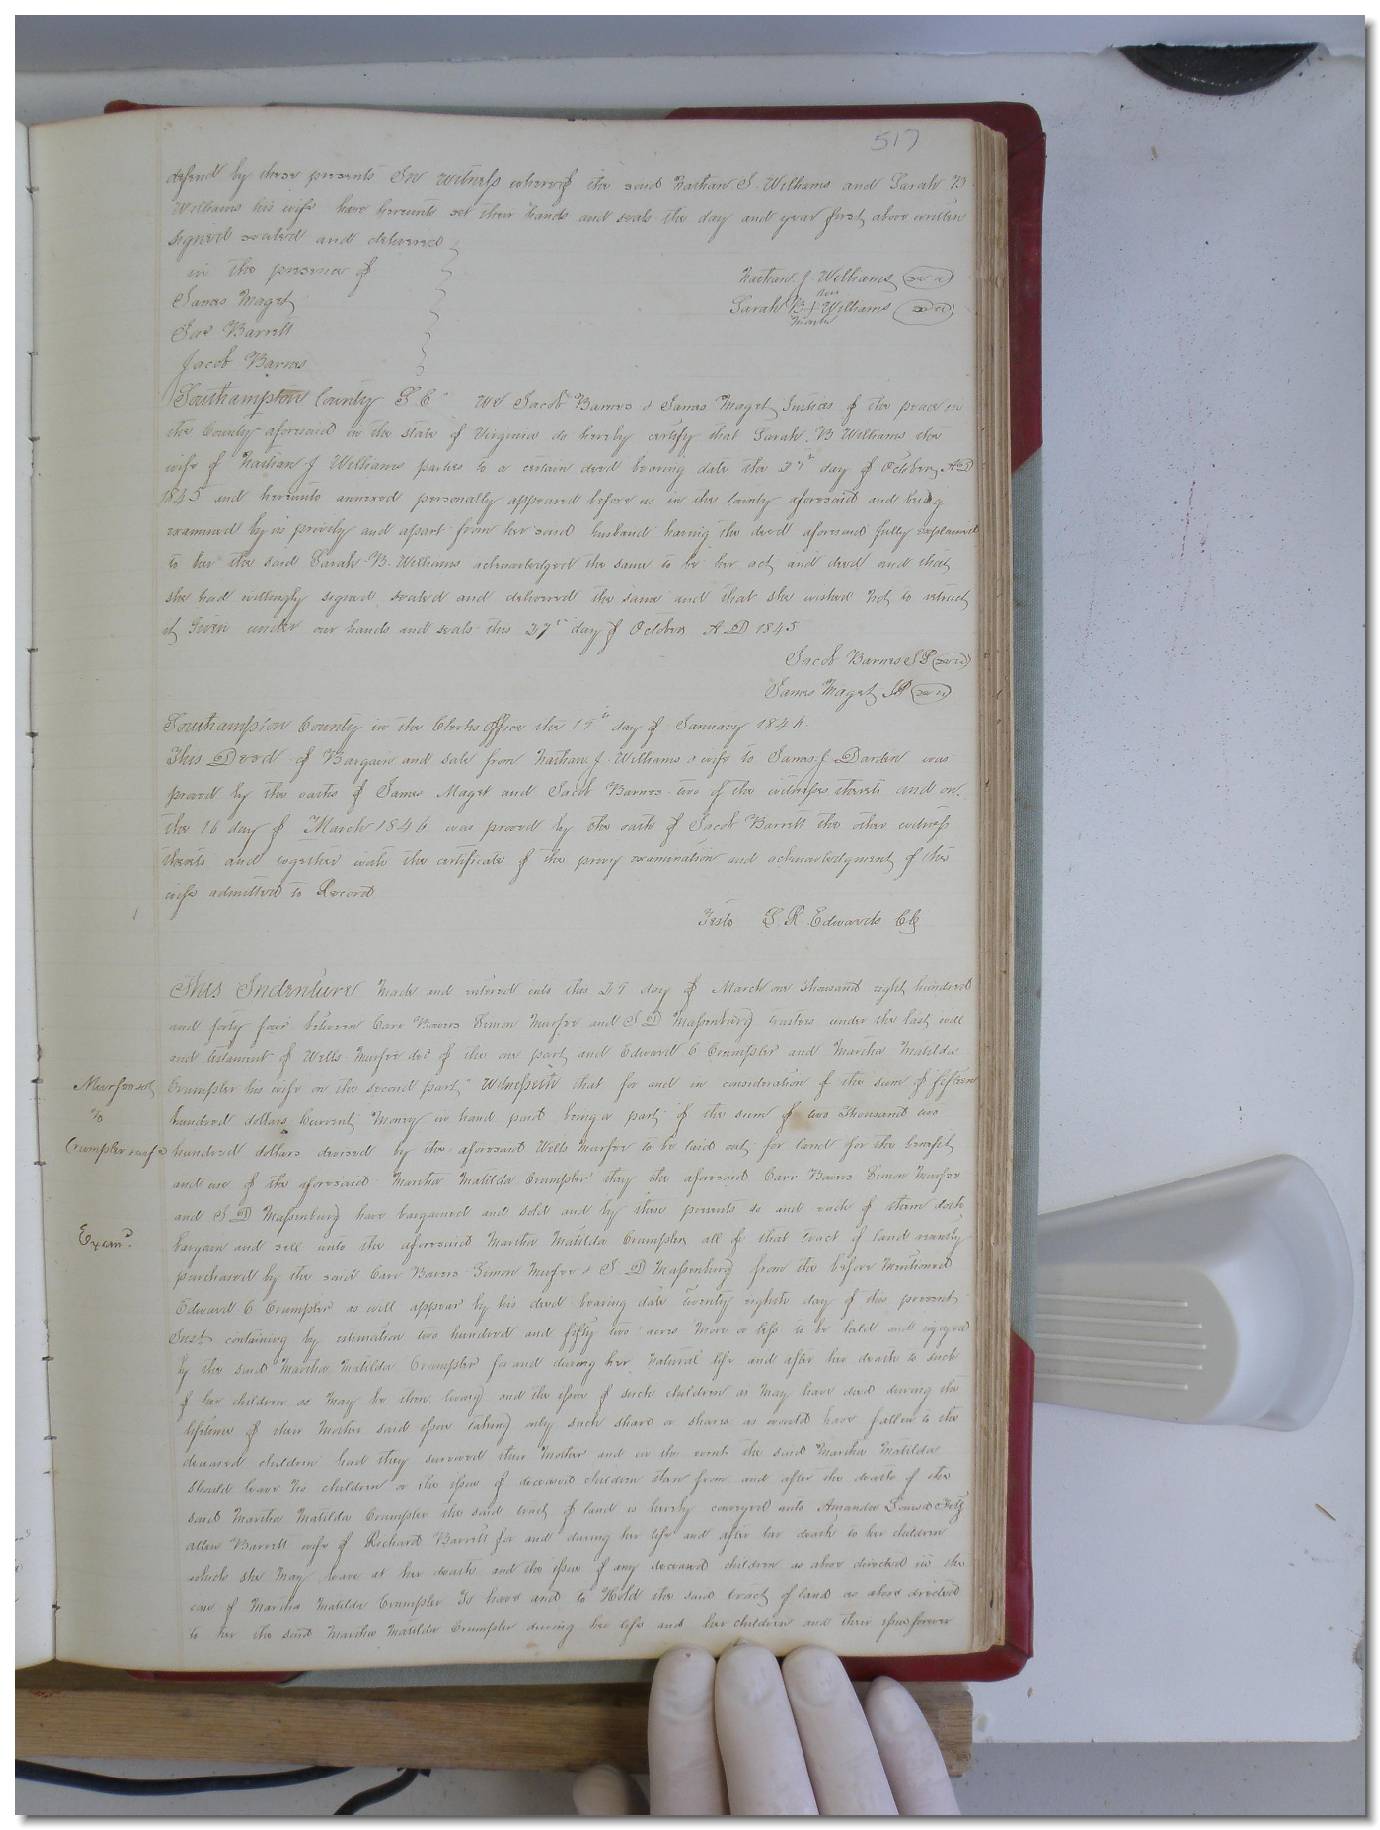 517
defend by these presents In witness whereof the said Nathan J. Williams and Sarah B
Williams his wife have hereunto set their hands and seals the day and year first above written
signed sealed and delivered
in the presence of
Nathan J. Williams (seal)
James Maget
Sarah B + Williams (seal)
her
mark
Jas Barrett
Jacob Barnes
Southampton County S C" We Jacob Barnes & James Maget Justices of the peace in
the County aforesaid in the state of Virginia do hereby certify that Sarah. B Williams the
wife of Nathan J Williams parties to a certain deed bearing date the 27th day of October AD
1845 and hereunto annexed personally appeared before us in the County aforesaid and being
examined by us privily and apart from her said husband having the deed aforesaid fully explained
to her the said Sarah B. Williams acknowledged the same to be her act and deed and that
she had willingly signed sealed and delivered the same and that she wished not to retract
it Given under our hands and seals this 27th day of October A D 1845
Jacob Barnes (seal)
James Maget JP (seal)
Southampton County in the Clerks Office the 19th day of January 1846
This Deed of Bargain and sale from Nathan J. Williams & wife to James J Darden was
proved by the oaths of James Maget and Jacob Barnes two of the witnesses thereto and on
the 16 day of March 1846 was proved by the oath of Jacob Barrett the other witness
thereto and together with the certificate of the privy examination and acknowledgment of the
wife admitted to Record
Teste L R Edwards Clk
This Indenture Made and entered into this 29 day of March one thousand eight hundred
and forty four between Carr Bowers Simon Murfee and S D Massenburg Exators under the last will
and testament of Wills Murfee decd of the one part and Edward C Crumpler and Martha Matilda
Murfee
to
Crumpler & wife
Crumpler his wife on the second part Witnesseth that for and in consideration of the sum of fifteen
hundred dollars Current Money in hand paid being a part of the sum of two thousand two
hundred dollars devised by the aforesaid Wills Murfee to be laid out for land for the benefit
and use of the aforesaid Martha Matilda Crumpler they the aforesaid Carr Bowers Simon Murfee
and S D Massenburg have bargained and sold and by these presents do and each of them doth
Examd.
bargain and sell unto the aforesaid Martha Matilda Crumpler all of that tract of land recently
purchased by the said Carr Bowers Simon Murfee & S D Massenburg from the before Mentioned
Edward C Crumpler as will appear by his deed bearing date twenty eighth day of this present
Inst containing by estimation two hundred and fifty two acres More or less to be held and enjoyed
by the said Martha Matilda Crumpler for and during her Natural life and after her death to such
of her children as May be then living and the issue of such children as May have died during the
lifetime of their Mother said issue taking only such share or shares as would have fallen to the
deceased children had they survived their Mother and in the event the said Martha Matilda
should leave No children or the issue of deceased children then from and after the death of the
said Martha Matilda Crumpler the said tract of land is hereby conveyed unto Amanda Louisa
allen Barrett wife of Richard Barrett for and during her life and after her death to her children
which she May leave at her death and the issue of any deceased children as above directed in the
case of Martha Matilda Crumpler To have and to Hold the said tract of land as above directed
to her the said Martha Matilda Crumpler during her life and her children and their issue forever